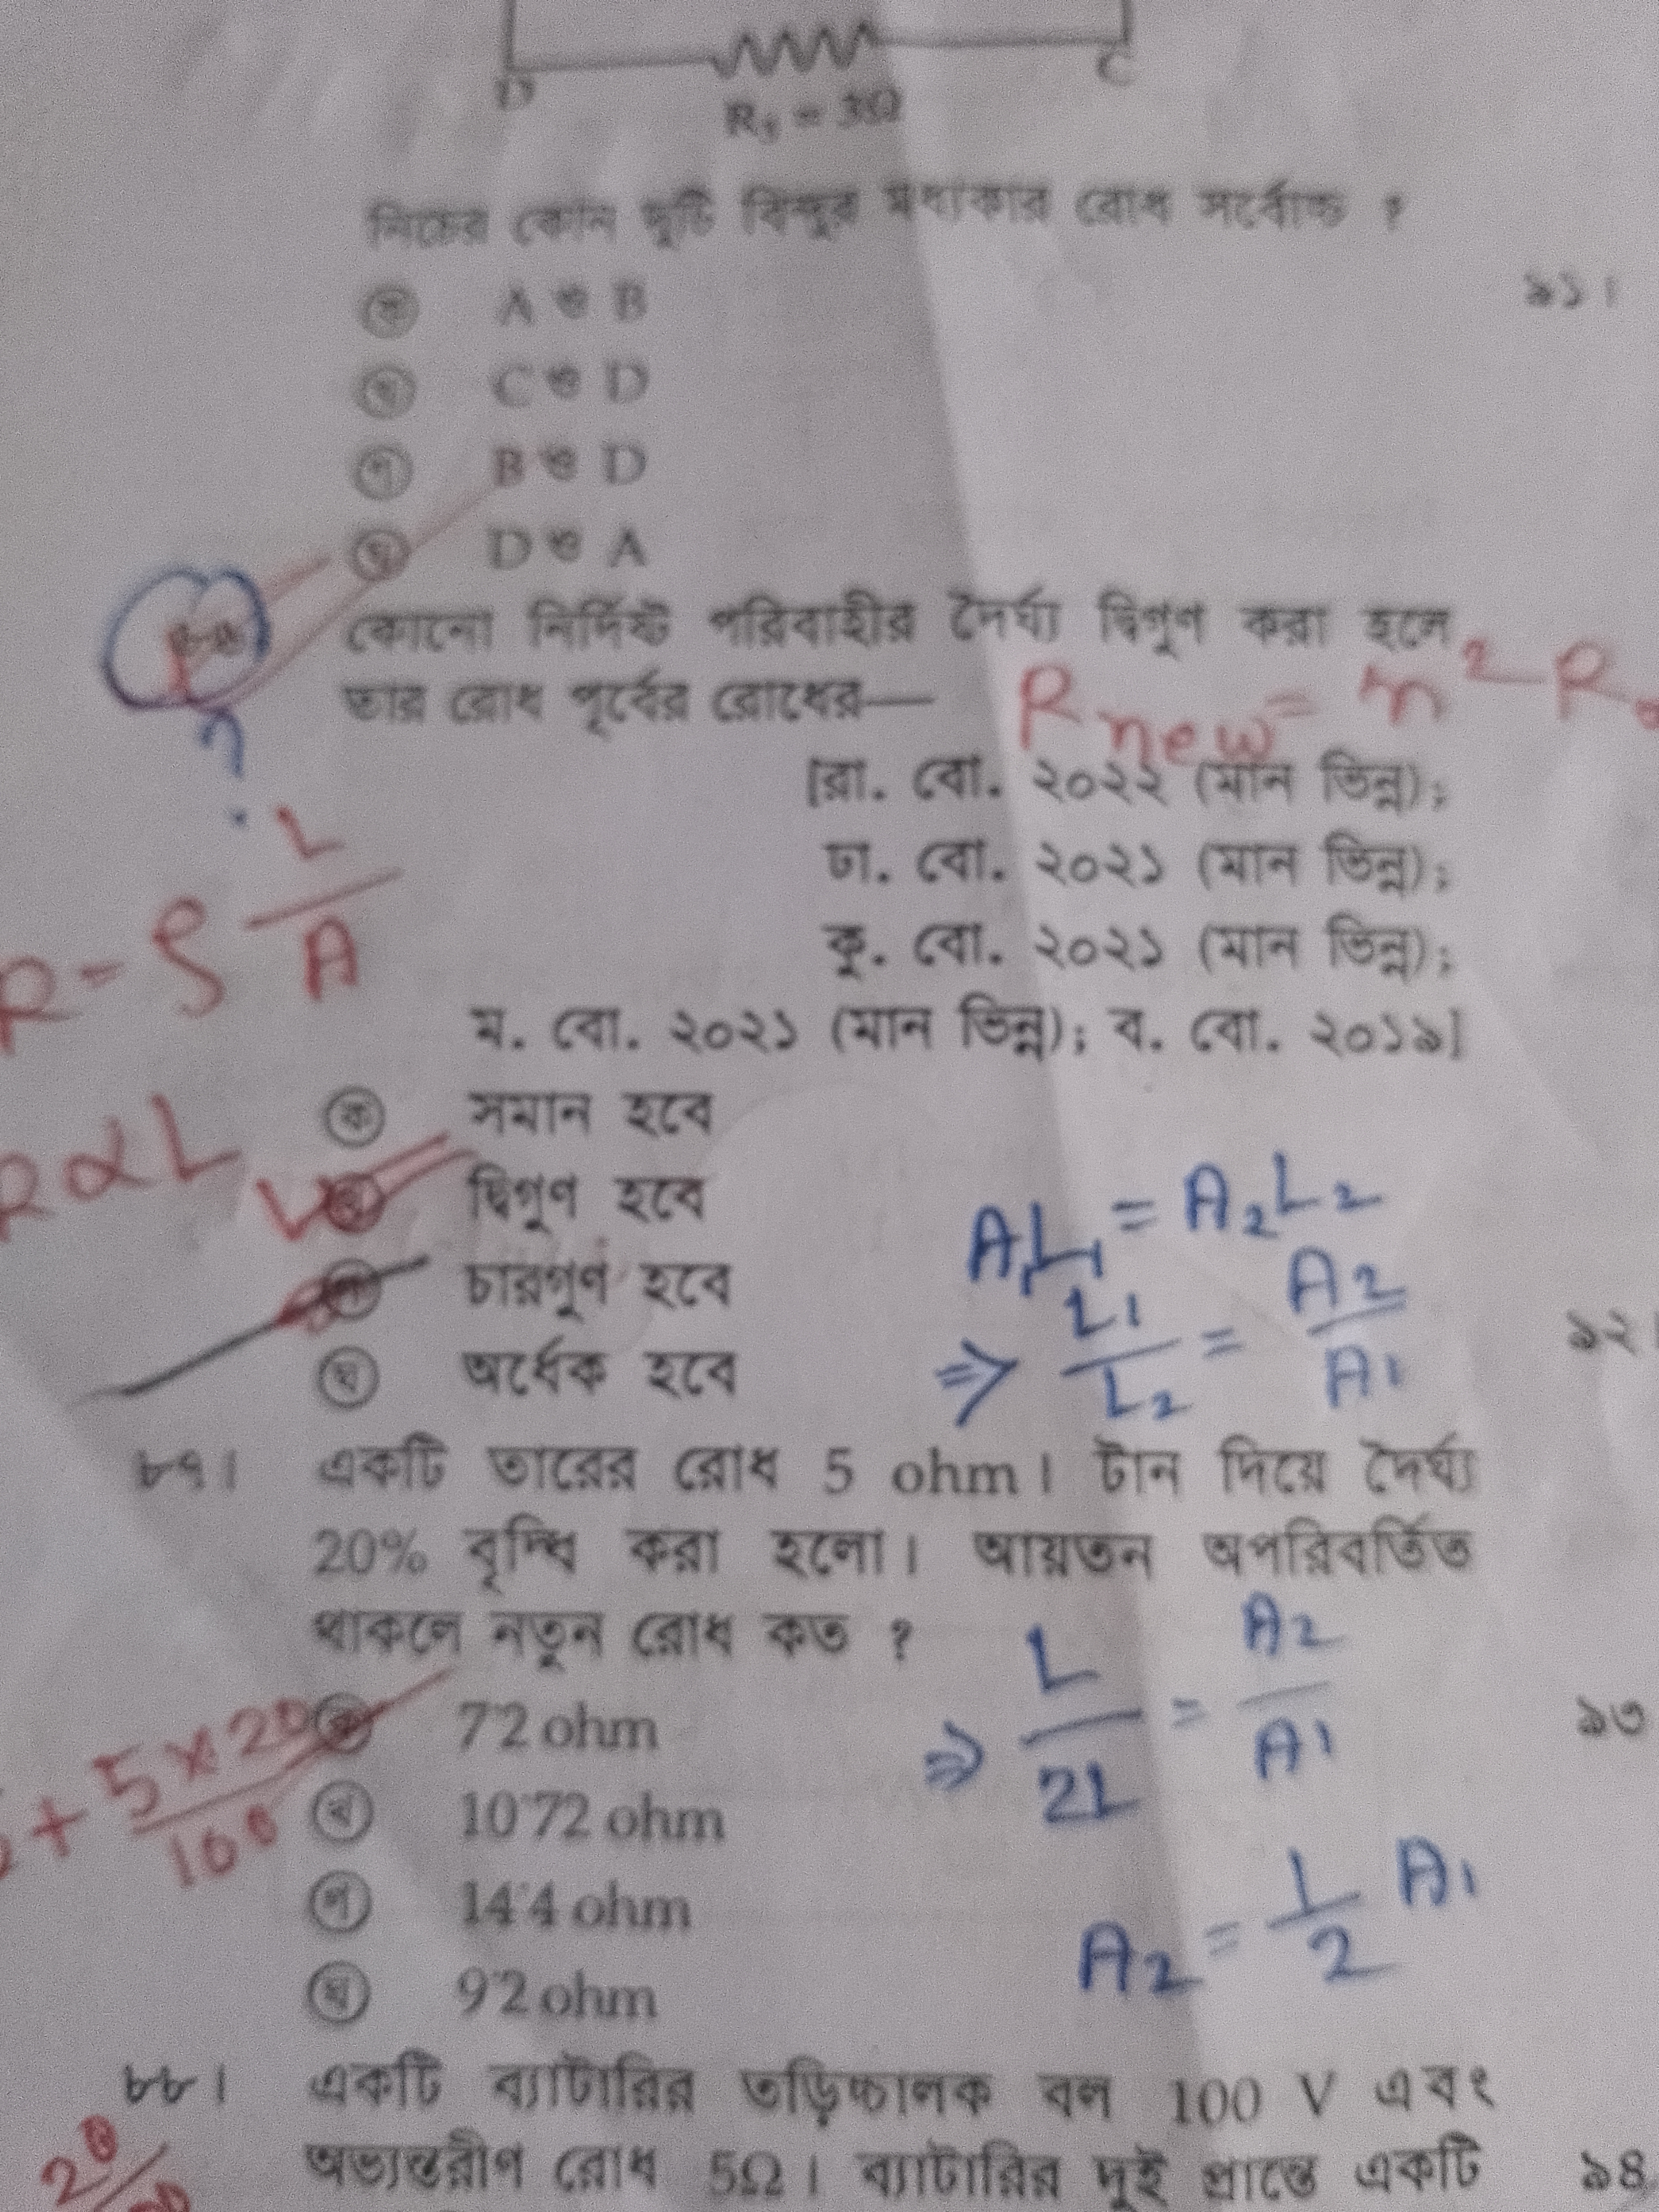 D
C
R₃ = 3Ω
নিচের কোন দুটি বিন্দুর মধ্যকার রোধ সর্বোচ্চ ?
৯১।
ক A ও B
খ C ও D
গ B ও D
ঘ D ও A
কোনো নির্দিষ্ট পরিবাহীর দৈর্ঘ্য দ্বিগুণ করা হলে
তার রোধ পূর্বের রোধের—
R new = n² R
?
[রা. বো. ২০২২ (মান ভিন্ন);
ঢা. বো. ২০২১ (মান ভিন্ন);
কু. বো. ২০২১ (মান ভিন্ন);
ম. বো. ২০২১ (মান ভিন্ন); ব. বো. ২০১৯]
R = ρ L/A
R α L
ক সমান হবে
খ দ্বিগুণ হবে
গ চারগুণ হবে
ঘ অর্ধেক হবে
A₁L₁ = A₂L₂
⇒ L₁/L₂ = A₂/A₁
৯২।
৮৭। একটি তারের রোধ 5 ohm। টান দিয়ে দৈর্ঘ্য
20% বৃদ্ধি করা হলো। আয়তন অপরিবর্তিত
থাকলে নতুন রোধ কত ?
ক 7·2 ohm
খ 10·72 ohm
গ 14·4 ohm
ঘ 9·2 ohm
+ 5×20/100
⇒ L/2L = A₂/A₁
A₂ = 1/2 A₁
৯৩
৮৮। একটি ব্যাটারির তড়িচ্চালক বল 100 V এবং
অভ্যন্তরীণ রোধ 5Ω। ব্যাটারির দুই প্রান্তে একটি
৯৪